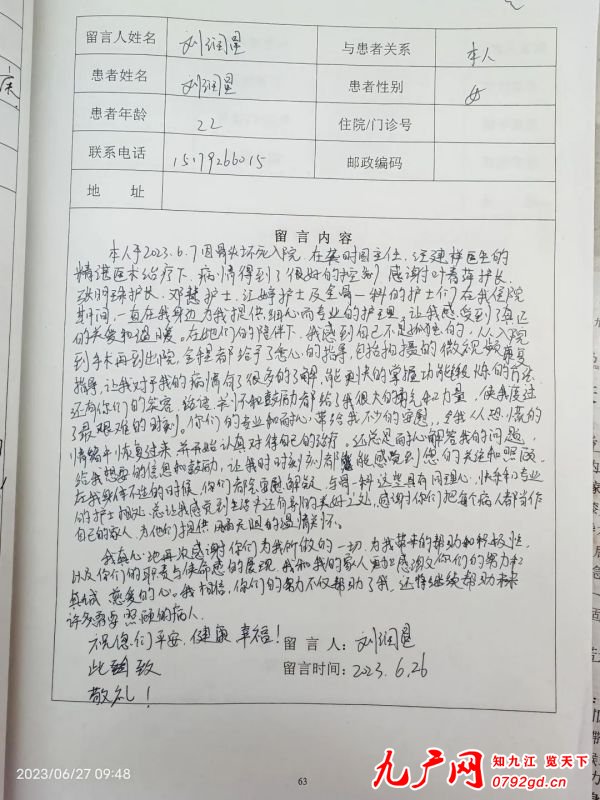 留言人姓名 刘润星 与患者关系 本人
患者姓名 刘润星 患者性别 女
患者年龄 22 住院/门诊号
联系电话 15179266015 邮政编码
地 址
留 言 内 容
本人于2023.6.7因骨头坏死入院,在龚时国主任、汪建样医生的
精湛医术治疗下,病情得到了很好的控制,感谢叶春萍护长、
张明珠护长、邓慧护士、江婷护士及全骨一科的护士们在我住院
期间,一直在我身边为我提供细心而专业的护理,让我感受到了真正
的关爱和温暖。在她们的陪伴下,我感到自己不是孤独的,从入院
到手术再到出院,全程都给予了悉心的指导,包括拍摄的微视频康复
指导,让我对于我的病情有了很多的了解,能更快的掌握功能锻炼的方法
还有你们的笑容、给予关怀和鼓励都给了我很大的信心和力量,使我度过
了最艰难的时刻。你们的专业和耐心带给我不少的安慰,令我从恐慌的
情绪中恢复过来,并开始认真对待自己的治疗。还总是耐心解答我的问题,
给我想要的信息和鼓励,让我时时刻刻都能感觉到您的关注和照顾。
在我躺体不适的时候,你们都能安慰解疑,与骨一科这些具有同理心、快乐和专业
的护士相处,总让我感觉到生活中还有别的美好之处,感谢你们把每个病人都当作
自己的家人,为他们提供无微不至的温情关怀。
我真心地再次感谢你们为我所做的一切,为我带来的帮助和积极性,
以及你们的职责与使命感的展现。我和我的家人更加感谢你们的努力和
真诚、慈爱的心。我相信,你们的努力不仅帮助了我,还将继续帮助未来
许多需要照顾的病人。
祝您们平安、健康、幸福! 留 言 人:刘润星
此致 留言时间:2023.6.26
敬礼!
63
2023/06/27 09:48
九户网 知九江 览天下
0792gd.cn